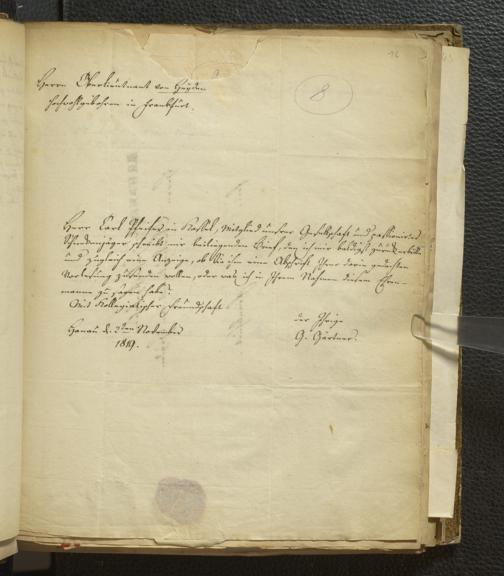 16
8
Herrn Oberlieutnant von Heyden
Hochwohlgebohren in Frankfurt.
Herr Carl Pfeiffer in Kassel, Mitglied unsrer Gesellschaft und passionirter
schreibt mir beiliegenden Brief, den ich mir baldigst zurück erbitte
und zugleich eine Anzeige, ob Sie ihm eine Abschrift Ihrer darin gedachten
Vorlesung zusenden wollen, oder was ich in Ihrem Nahmen diesem Ehren-
manne zu sagen habe?
Mit Kollegialischer Freundschaft
der Ihrige
Hanau d. 2ten November
G. Gärtner.
1819.